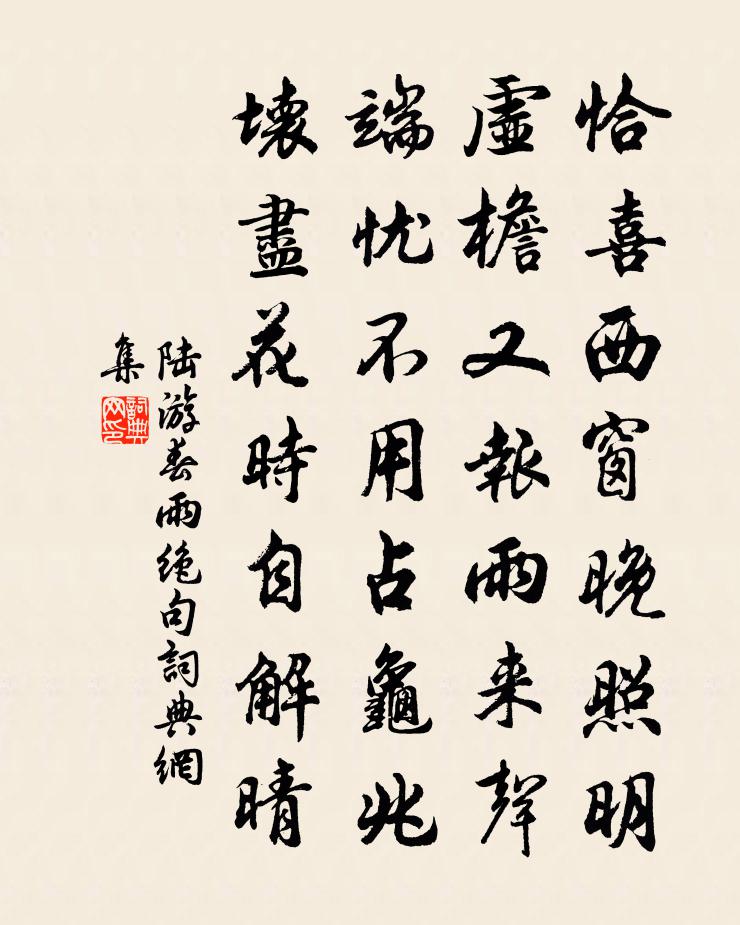 恰喜西窗晚照明
虛檐又報雨来聲
端忧不用占龜兆
壞盡花時自解晴
陸游春雨絶句詞典網
集
詞典
网印